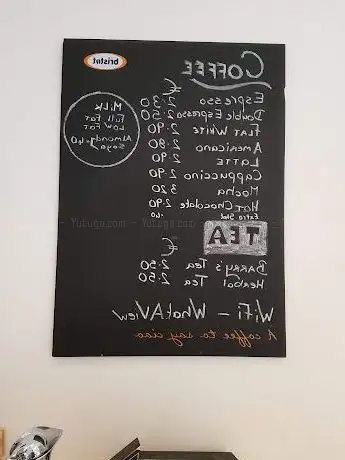 bristot
COFFEE
€
Espresso 2.30
Double Espresso 2.50
Flat White 2.90
Americano 2.80
Latte 2.90
Cappuccino 2.90
Mocha 3.20
Hot Chocolate 2.90
Extra Shot .60
Milk
Full Fat
Low Fat
Almond .40
Soya
TEA
€
Barry's Tea 2.50
Herbal Tea 2.50
WiFi - WhatAView
A coffee to say ciao
Yutuga.com - Yutuga.com - Yutuga.com